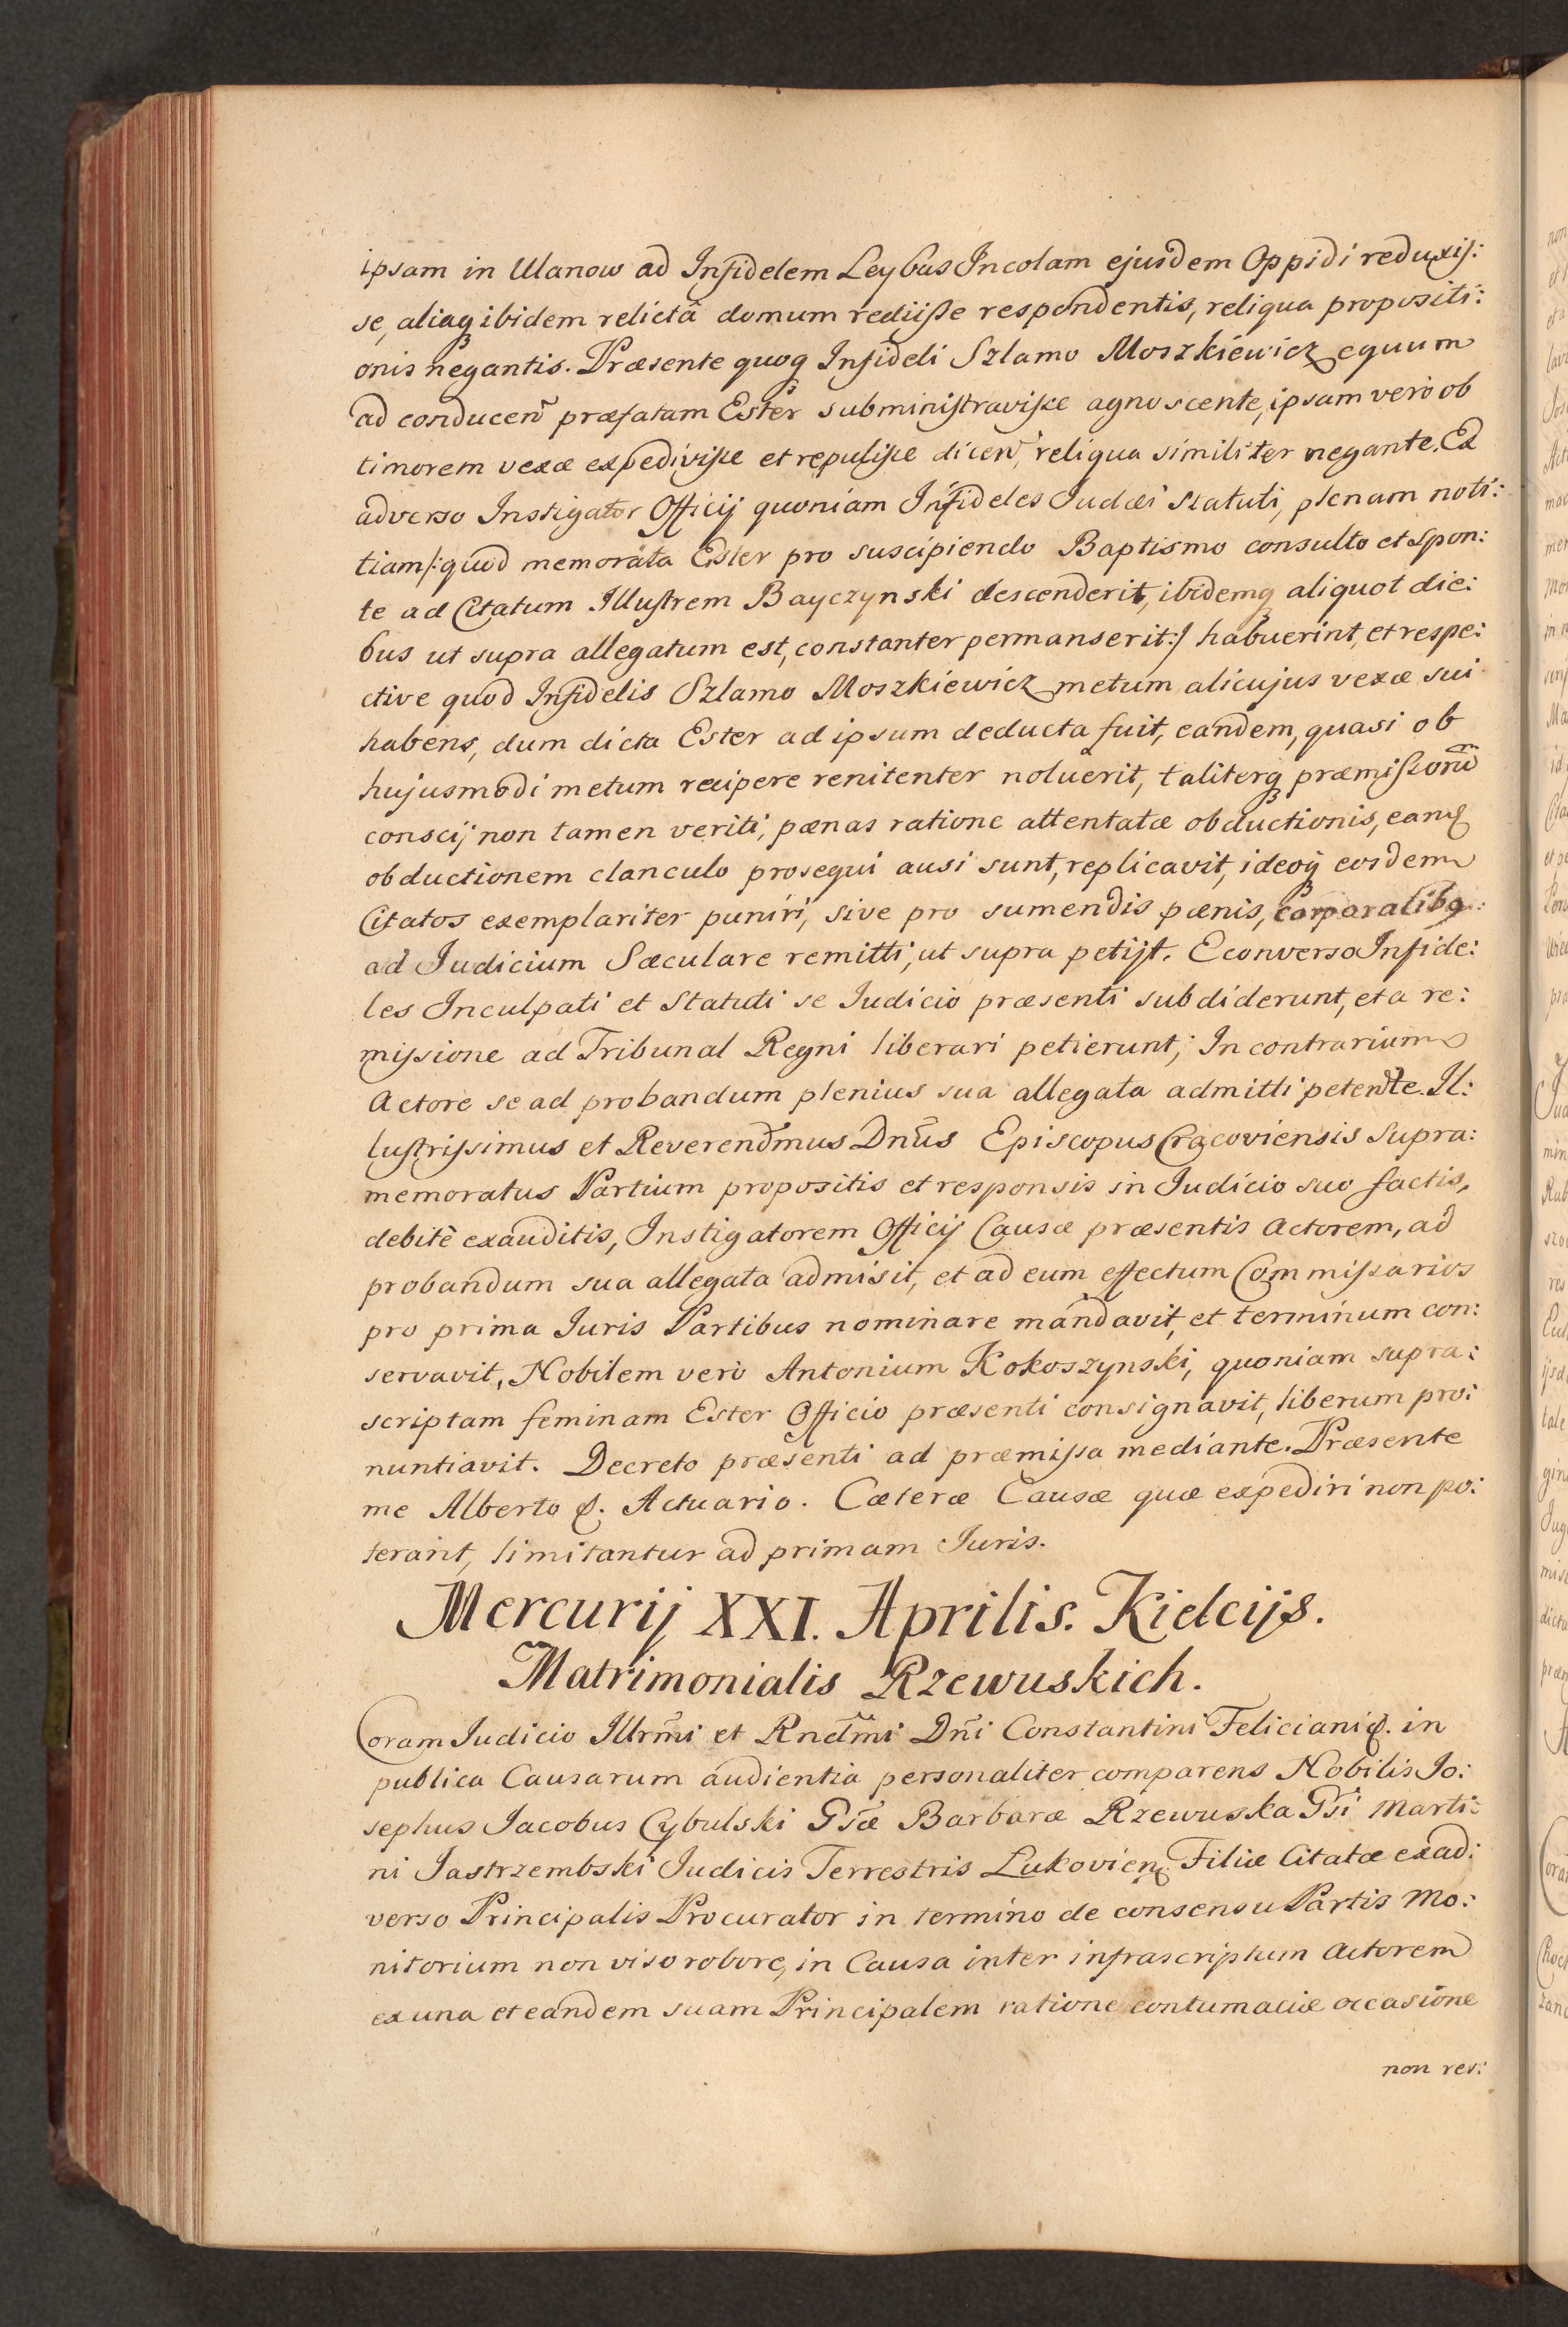 ipsam in Ulanow ad Infidelem Leybus Incolam ejusdem Oppidi reduxis:
se, aliaq ibidem relictâ domum rediisse respondentis, reliqua propositi:
onis negantis. Præsente quoq Infideli Szlamo Moszkiewicz equum
ad conducen̄ præfatam Ester subministravisse agnoscente, ipsam verò ob
timorem vexæ expedivisse et repulisse dicen̄, reliqua similiter negante. Ex
adverso Instigator Officij quoniam Infideles Iudæi Statuti, plenam noti:
tiam /: quod memorata Ester pro suscipiendo Baptismo consulto et spon:
te ad Citatum Illustrem Bayczynski descenderit, ibidemq aliquot die:
bus ut supra allegatum est, constanter permanserit :/ habuerint, et respe:
ctive quod Infidelis Szlamo Moszkiewicz metum alicujus vexæ sui
habens, dum dicta Ester ad ipsum deducta fuit, eandem, quasi ob
hujusmodi metum recipere renitenter noluerit, taliterq præmissorū
conscij non tamen veriti, pænas ratione attentatæ obductionis, eamq
obductionem clanculo prosequi ausi sunt, replicavit, ideoq eosdem
Citatos exemplariter puniri, sive pro sumendis pænis, corporalibq:
ad Iudicium Sæculare remitti, ut supra petijt. E converso Infide:
les Inculpati et Statuti se Iudicio præsenti subdiderunt, et a re:
missione ad Tribunal Regni liberari petierunt; In contrarium
Actore se ad probandum plenius sua allegata admitti petente. Il:
lustrissimus et Reverendm̄us Dn̄us Episcopus Cracoviensis supra:
memoratus Partium propositis et responsis in Iudicio suo factis,
debitè exauditis, Instigatorem Officij Causæ præsentis Actorem, ad
probandum sua allegata admisit, et ad eum effectum Commissarios
pro prima Iuris Partibus nominare mandavit, et terminum con:
servavit, Nobilem verò Antonium Kokoszynski, quoniam supra:
scriptam feminam Ester Officio præsenti consignavit, liberum pro:
nuntiavit. Decreto præsenti ad præmissa mediante. Præsente
me Alberto &. Actuario. Cæteræ Causæ quæ expediri non po:
terant, limitantur ad primam Iuris.
Mercurij XXI. Aprilis. Kielcijs.
Matrimonialis Rzewuskich.
Coram Iudicio Illrm̄i et Rndm̄i Dn̄i Constantini Feliciani &. in
publica Causarum audientia personaliter comparens Nobilis Jo:
sephus Iacobus Cybulski Gsǣ Barbaræ Rzewuska Gsī Marti:
ni Iastrzembski Iudicis Terrestris Lukovien Filiæ Citatæ exad:
verso Principalis Procurator in termino de consensu Partis Mo:
nitorium non viso robore, in Causa inter infrascriptum Actorem
ex una et eandem suam Principalem ratione contumaciæ occasione
non rev: